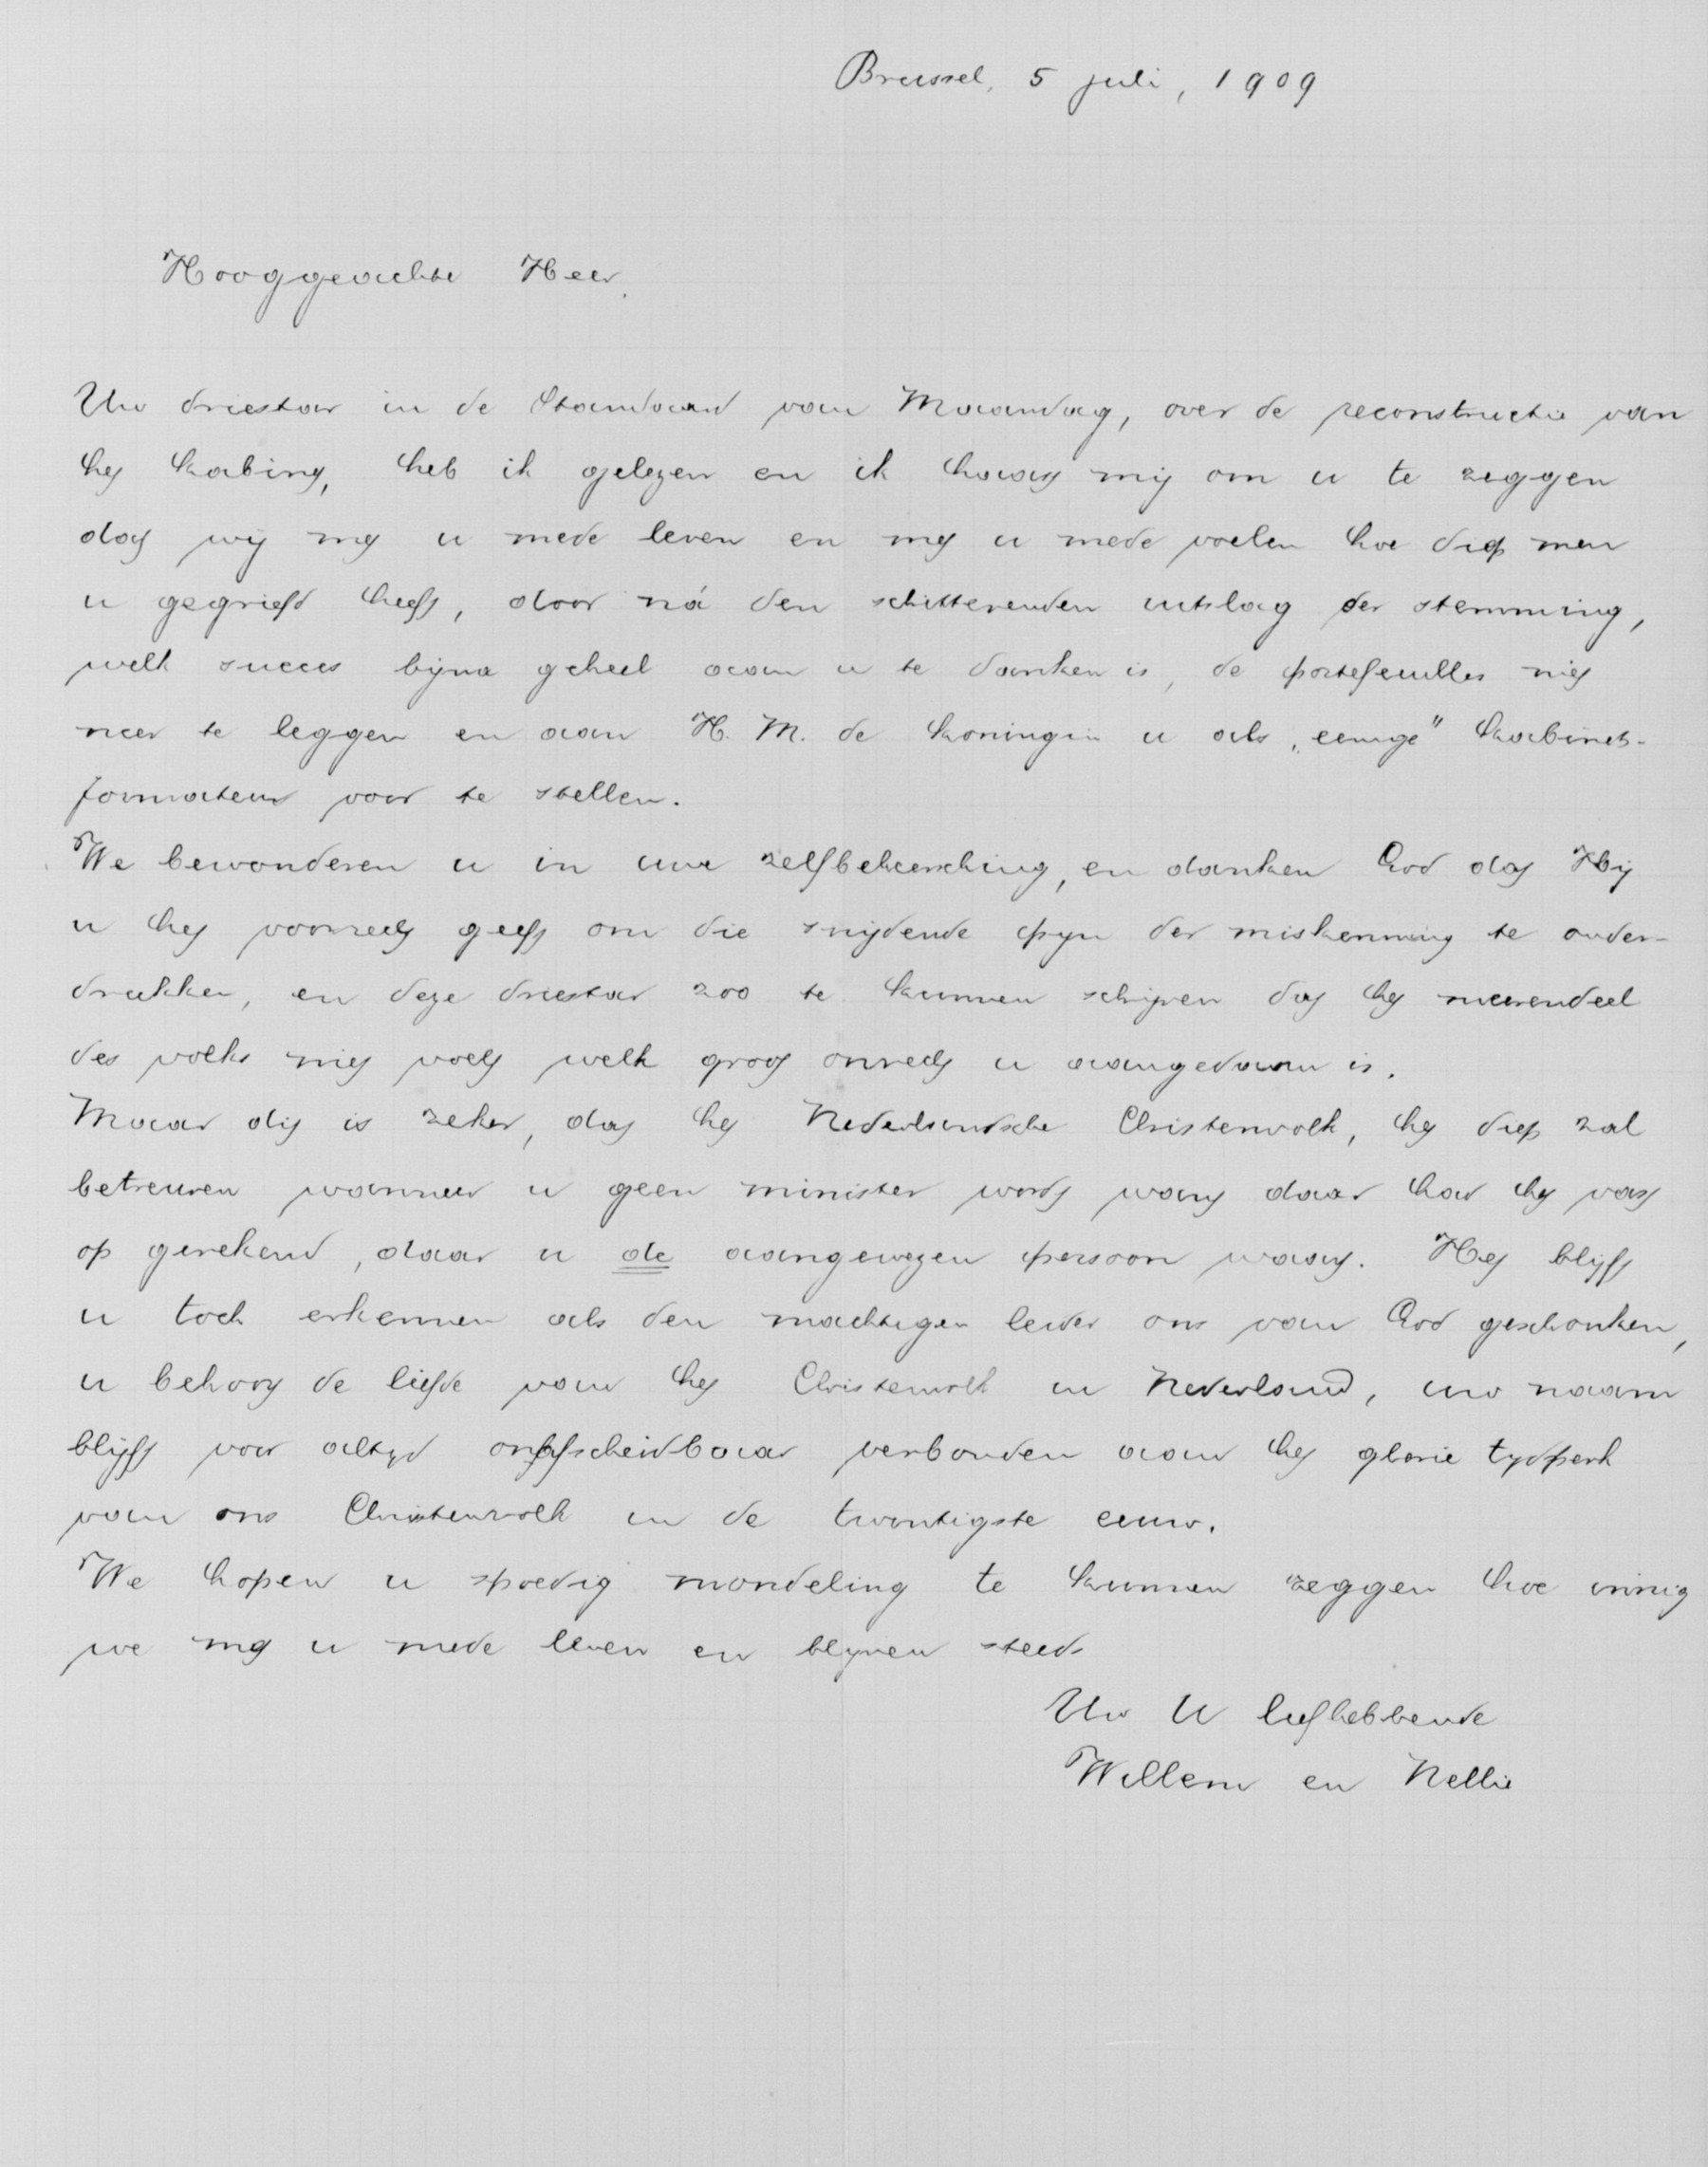 Brussel, 5 juli, 1909
Hooggeachte Heer,
Uw driestar in de Standaard van Maandag, over de reconstructie van
het kabinet, heb ik gelezen en ik haast mij om u te zeggen
dat wij met u mede leven en met u mede voelen hoe diep men
u gegriefd heeft, door ná den schitterenden uitslag der stemming,
welk succes bijna geheel aan u te danken is, de portefeuilles niet
neer te leggen en aan H. M. de Koningin u als „eenige" kabinets-
formateur voor te stellen.
We bewonderen u in uwe zelfbeheersching, en danken God dat Hij
u het voorrecht geeft om die snijdende pijn der miskenning te onder-
drukken, en deze driestar zoo te kunnen schrijven dat het meerendeel
des volks niet voelt welk groot onrecht u aangedaan is.
Maar dit is zeker, dat het Nederlandsche Christenvolk, het diep zal
betreuren wanneer u geen minister wordt want daar had het vast
op gerekend, daar u de aangewezen persoon waart. Het blijft
u toch erkennen als den machtigen leider ons van God geschonken,
u behoort de liefde van het Christenvolk in Nederland, uw naam
blijft voor altijd onafscheidbaar verbonden aan het glorie tijdperk
van ons Christenvolk in de twintigste eeuw.
We hopen u spoedig mondeling te kunnen zeggen hoe innig
we met u mede leven en blijven steeds
Uw U liefhebbende
Willem en Nellie